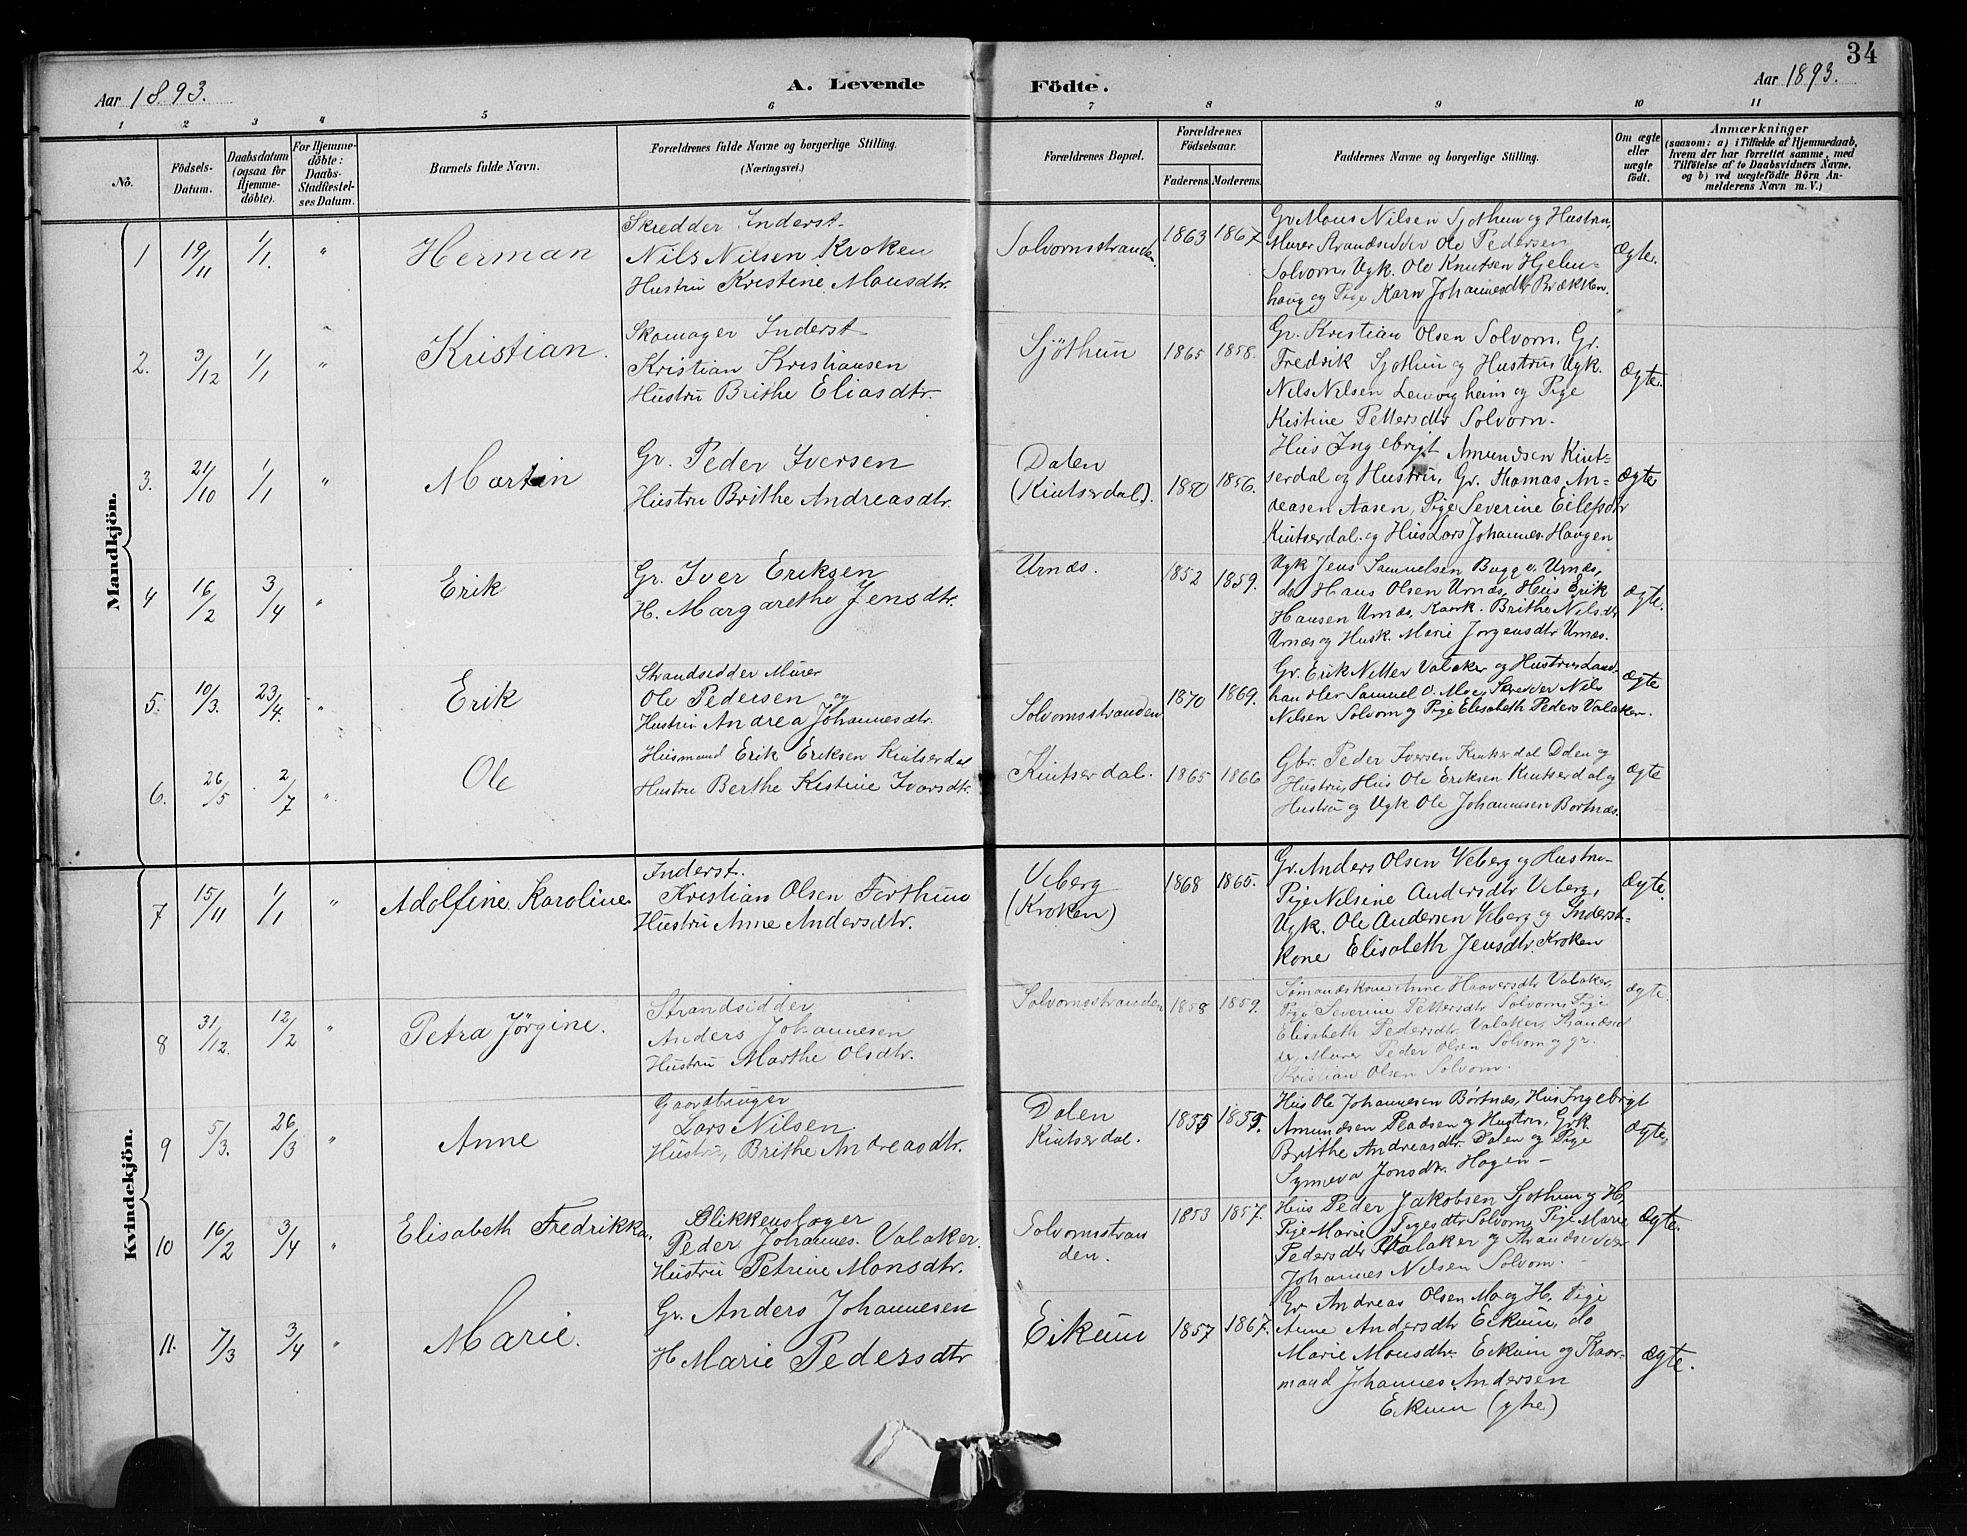 34
Aar 1893.
A. Levende Födte.
Aar 1893.
1 2 3 " 5 6 7 8 9 10 11
No.
Födsels-
Datum.
Daabsdatum
(ogsaa for
Hjemme-
döbte).
For Hjemme-
döbte:
Daabs-
Stadfæstel-
ses Datum.
Barnets fulde Navn.
Forældrenes fulde Navne og borgerlige Stilling.
(Næringsvei.)
Forældrenes Bopæl.
Forældrenes
Födselsaar.
Faderens. Moderens.
Faddernes Navne og borgerlige Stilling.
Om ægte
eller
uægte
födt.
Anmærkninger
(saasom: a) i Tilfælde af Hjemmedaab,
hvem der har forrettet samme, med
Tilföielse af to Daabsvidners Navne,
og b) ved uægtefödte Börn An-
melderens Navn m. V.)
Mandkjön.
1 19/11 1/1. " Herman
Skrædder Inderst.
Nils Nilsen Kroken
Hustru Kristine Monsdtr.
Solvornsstranden.
1863 1867.
Gr Mons Nilsen Sjøthun og Hustru,
Murer Strandsidder Ole Pedersen
Solvorn, Ugk. Ole Knutsen Hjelm-
haug og Pige Karn Johannesdtr Brækken.
Ægte.
2. 3/12 1/1 " Kristian.
Skomager Inderst
Kristian Kristiansen
Hustru Brithe Eliasdtr.
Sjöthun
1865 1858.
Gr. Kristian Olsen Solvorn, Gr.
Fredrik Sjøthun og Hustru, Ugk.
Nils Nilsen Lervigheim og Pige
Kistine Pettersdtr Solvorn.
Ægte.
3. 21/10 1/1 " Martin
Gr. Peder Iversen
Hustru Brithe Andreasdtr.
Dalen
(Kintserdal).
1850 1856.
Hus Ingebrigt Amundsen Kint-
serdal og Hustru, Gr. Thomas An-
dreasen Aasen, Pige Severine Eilefsdtr
Kintserdal. og Hus Lars Johannes. Haugen
Ægte
4 16/2 3/4 " Erik
Gr. Iver Eriksen
H. Margarethe Jensdtr.
Urnæs.
1852 1859.
Ugk Jens Samuelsen Bugge Urnæs,
do Hans Olsen Urnæs, Hus Erik
Hansen Urnæs, Kaark. Brithe Nilsdtr
Urnæs og Husk. Marie Jørgensdtr Urnæs.
Ægte.
5. 10/3. 23/4. " Erik
Strandsidder Murer
Ole Pedersen og
Hustru Andrea Johannesdtr.
Solvornsstranden
1870 1869.
Gr. Erik Nitter Valaker og Hustru, Land-
handler Samuel O. Moe, Skrædder Nils
Nilsen Solvorn og Pige Elisabeth Peders Valaker.
Ægte
6. 26/5 2/7 " Ole
Husmand Erik Eriksen Kintserdal
Hustru Berthe Kistine Ivarsdtr.
Kintserdal.
1865 1866
Gbr. Peder Iversen Kintserdal Dalen og
Hustru, Hus Ole Eriksen Kintserdal og
Hustru og Ugk Ole Johannesen Bortnæs.
Ægte
Kvindekjön.
7 15/11 1/1 " Adolfine Karoline
Inderst.
Kristian Olsen Forthun
Hustru Anne Andersdtr.
Veberg
(Kroken)
1868 1865.
Gr. Anders Olsen Veberg og Hustru-
Pige Nilsine Andersdtr Veberg,
Ugk. Ole Andersen Veberg og Inderst-
kone Elisabeth Jensdtr. Kroken
Ægte.
8 31/12. 12/2 " Petra Jörgine.
Strandsidder
Anders Johannesen
Hustru Marthe Olsdtr.
Solvornsstranden
1858 1859.
Sømandskone Anne Haaversdtr Valaker,
Pige Severine Pettersdtr Solvorn, Pige
Elisabeth Pedersdtr. Valaker, Strandsid
der, Murer Peder Olsen Solvorn og gr.
Kristian Olsen Solvorn.
Ægte.
9 5/3. 26/3 " Anne
Gaardbruger
Lars Nilsen.
Hustru, Brithe Andreasdtr.
Dalen
Kintserdal.
1855 1855.
Hus Ole Johannesen Bortnæs, Hus Ingebrigt
Amundsen Pladsen og Hustru, Grk.
Brithe Andreasdtr. Dalen og Pige
Synneva Jonsdtr. Hagen -
Ægte,
10 16/2 3/4 " Elisabeth Fredrikka.
Blikkenslager
Peder Johannes. Valaker.
Hustru Petrine Monsdtr.
Solvornsstran
den.
1853 1857.
Hus Peder Jakobsen Sjøthun og H.
Pige Marie Tigesdtr Solvorn, Pige Marie
Pedersdtr Valaker og Strandsidder
Johannes Nilsen Solvorn. -
Ægte.
11. 7/3 3/4 " Marie.
Gr. Anders Johannesen
H Marie Pedersdtr
Eikum
1857 1867.
Gr Andreas Olsen Mo og H. Pige
Anne Andersdtr Eikum, do
Marie Monsdtr. Eikum og Kaar-
mand Johannes Andersen
Eikum (ytre)
Ægte.